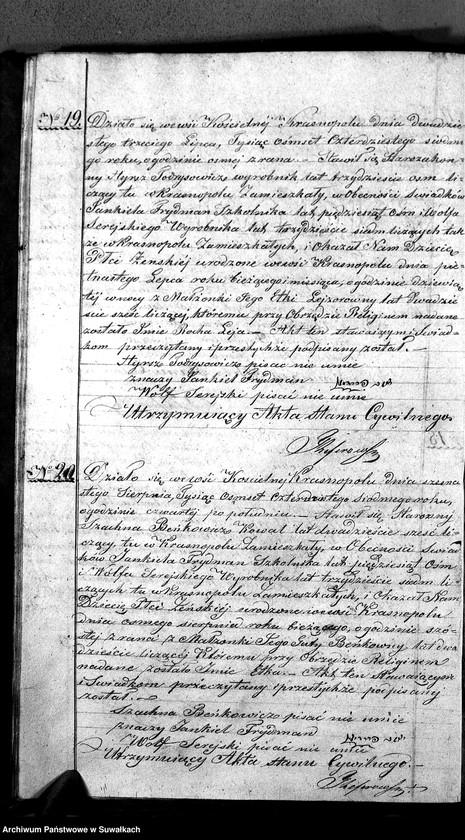 No 19.
Działo się we wsi Kościelnej Krasnopolu dnia dwudzie
stego trzeciego Lipca, Tysiąc ośmset Czterdziestego siódm
ego roku, o godzinie ósmej z rana. — Stawił się Starozakon
ny Hyrsz wyrobnik lat trzydzieście ośm li
czący tu w Krasnopolu Zamieszkały, w Obecności Swiadków
Jankiela Frydman Szkolnika lat pięćdziesiąt Ośm i Wolfa
Serejskiego Wyrobnika lat trzydzieście siedm liczących tak
że w Krasnopolu Zamieszkałych, i Okazał Nam Dziecię
Płci Żeńskiej urodzone we wsi Krasnopolu dnia pię
tnastego Lipca roku bieżącego i miesiąca, o godzinie dziewią
tej w nocy z Małżonki Jego Etki Lejzerowny lat Dwadzie
ścia sześć liczącej, któremu przy Obrzędzie Religijnem nadane
zostało Imie Rocha Leja. — Akt ten stawaiącym i Swiad
kom przeczytany i przez tychże podpisany został. —
Hyrsz pisac nie umie
znaczy Jankiel Frydman
Wolf Serejski pisać nie umie
Utrzymujący Akta Stanu Cywilnego.
No 20.
Działo się we wsi Kościelnej Krasnopolu dnia szesna
stego Sierpnia, Tysiąc ośmset Czterdziestego Siódmego roku,
o godzinie czwartej po południu. — Stawił się Starozny
Szachna Beńkowicz Kowal lat dwadzieścia sześć li
czący, tu w Krasnopolu Zamieszkały, w Obecności Swiad
ków Jankiela Frydman Szkolnika lat pięćdziesiąt Ośm
i Wolfa Serejskiego Wyrobnika lat trzydzieście siedm li
czących tu w Krasnopolu Zamieszkałych, i Okazał Nam
Dziecię Płci Żeńskiej urodzone we wsi Krasnopolu
dnia ósmego sierpnia roku bieżącego, o godzinie szó
stej z rana z Małżonki Jego Guty Beńkowny lat dwa
dzieście liczącej, któremu przy Obrzędzie Religijnem
nadane zostało Imie Etka. — Akt ten Stawaiącym
i Swiadkom przeczytany i przez tychże podpisany
został. —
Szachna Beńkowicz pisać nie umie
znaczy Jankiel Frydman
Wolf Serejski pisać nie umie
Utrzymujący Akta Stanu Cywilnego. —
Archiwum Państwowe w Suwałkach